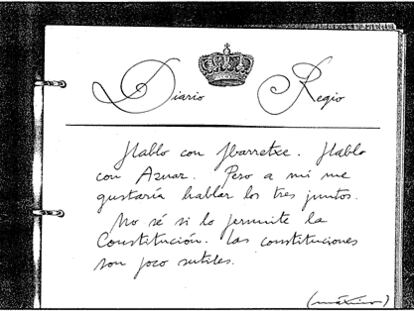 Diario Regio
Hablo con Ibarretxe. Hablo
con Aznar. Pero a mí me
gustaría hablar los tres juntos.
No sé si lo permite la
Constitución. Las constituciones
son poco sutiles.
(máximo)